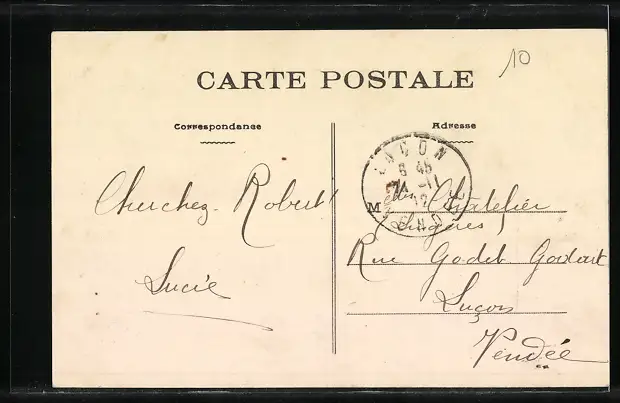 10
CARTE POSTALE
Correspondance
Adresse
LUÇON
6 45
24 -11
12
VENDÉE
Cherchez Robert
Lucie
M Chatelier
Lingères
Rue Godet
Luçon
Vendée